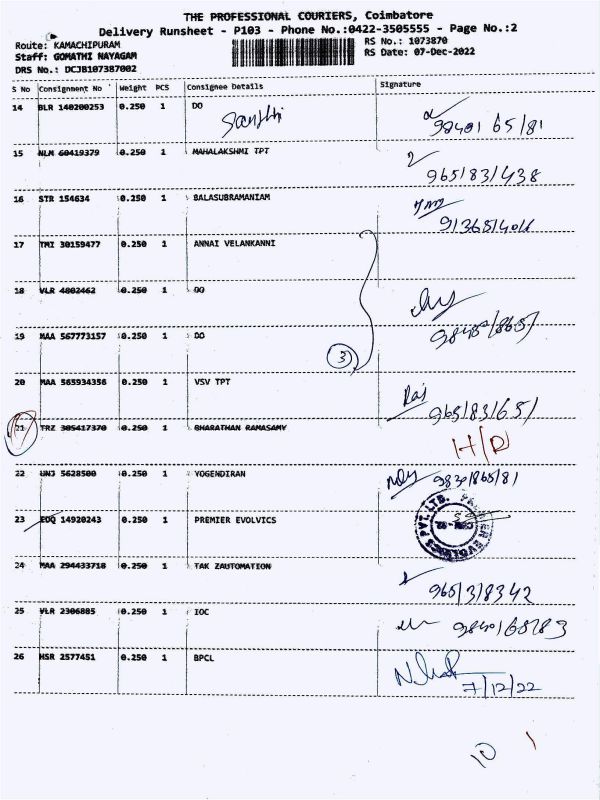 THE PROFESSIONAL COURIERS, Coimbatore
Delivery Runsheet - P103 - Phone No.:0422-3505555 - Page No.:2
Route: KAMACHIPURAM
RS No.: 1073870
Staff: GOMATHI NAYAGAM
RS Date: 07-Dec-2022
DRS No.: DCJB107387002
S No Consignment No Weight PCS Consignee Details Signature
14 BLR 140200253 0.250 1 DO
15 NLM 60419379 0.250 1 MAHALAKSHMI TPT
965/83/438
16 STR 154634 0.250 1 BALASUBRAMANIAM
17 TMI 30159477 0.250 1 ANNAI VELANKANNI
18 VLR 4802462 0.250 1 DO
19 MAA 567773157 0.250 1 DO
3
20 MAA 565934356 0.250 1 VSV TPT
Raj
965/83/651
21 TRZ 305417370 0.250 1 BHARATHAN RAMASAMY
H/D
22 UNJ 5628500 0.250 1 YOGENDIRAN
23 EDQ 14920243 0.250 1 PREMIER EVOLVICS
24 MAA 294433718 0.250 1 TAK ZAUTOMATION
965/3/8342
25 VLR 2306885 0.250 1 IOC
26 HSR 2577451 0.250 1 BPCL
7/12/22
10 1